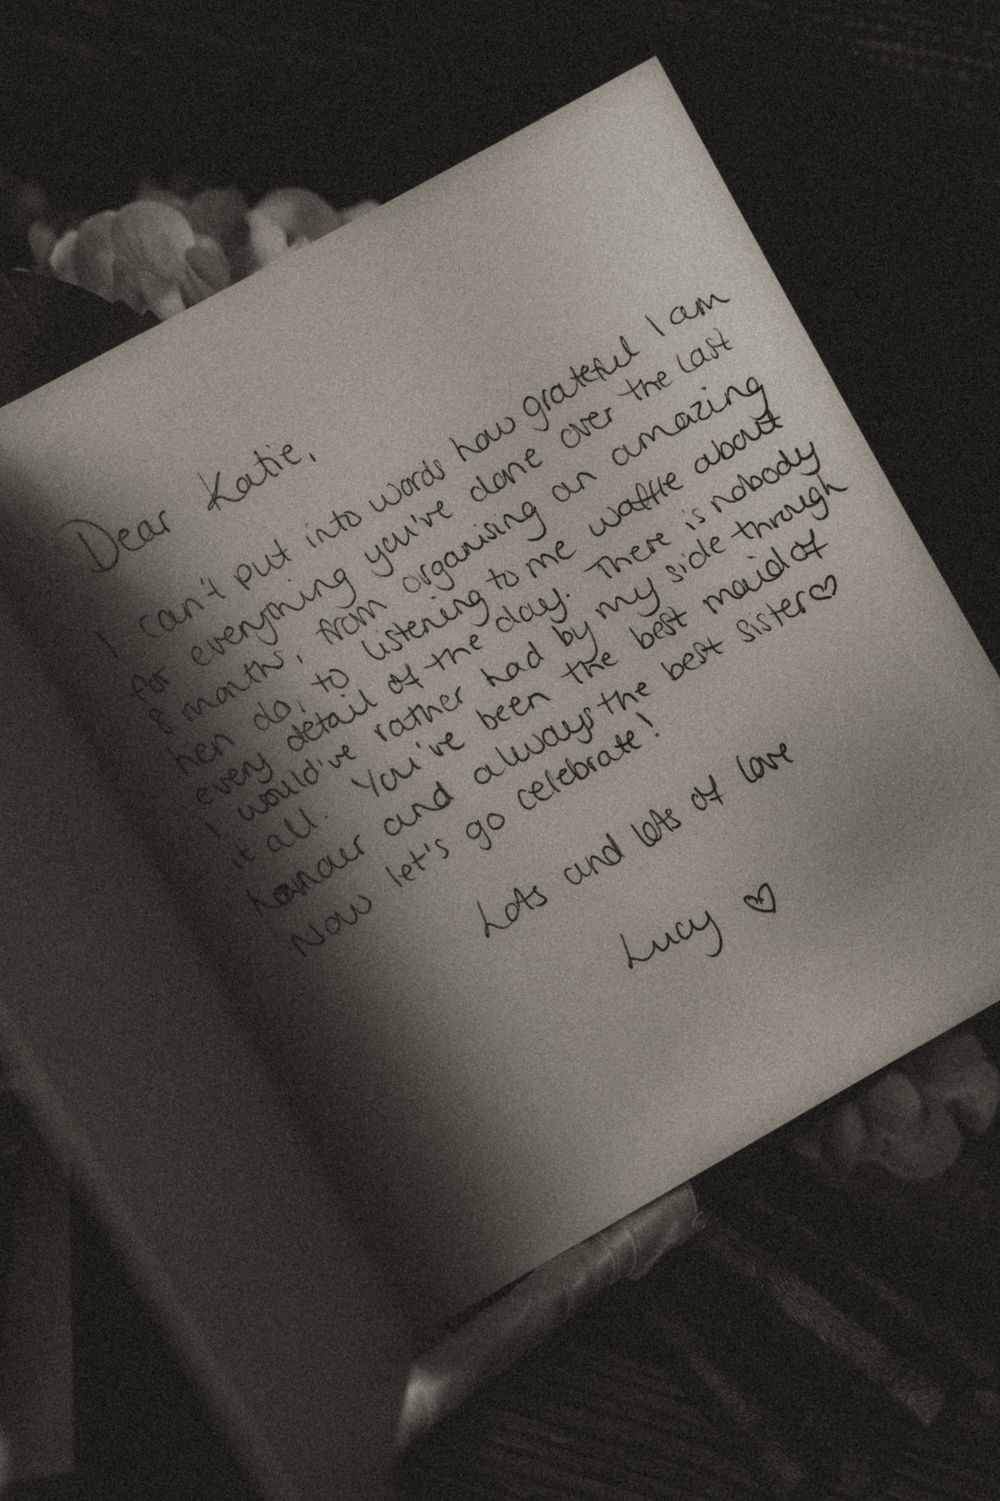 Dear Katie,
I can't put into words how grateful I am
for everything you've done over the last
8 months, from organising an amazing
hen do, to listening to me waffle about
every detail of the day. There is nobody
I would've rather had by my side through
it all. You've been the best maid of
honour and always the best sister♡
Now let's go celebrate!
Lots and lots of love
Lucy ♡